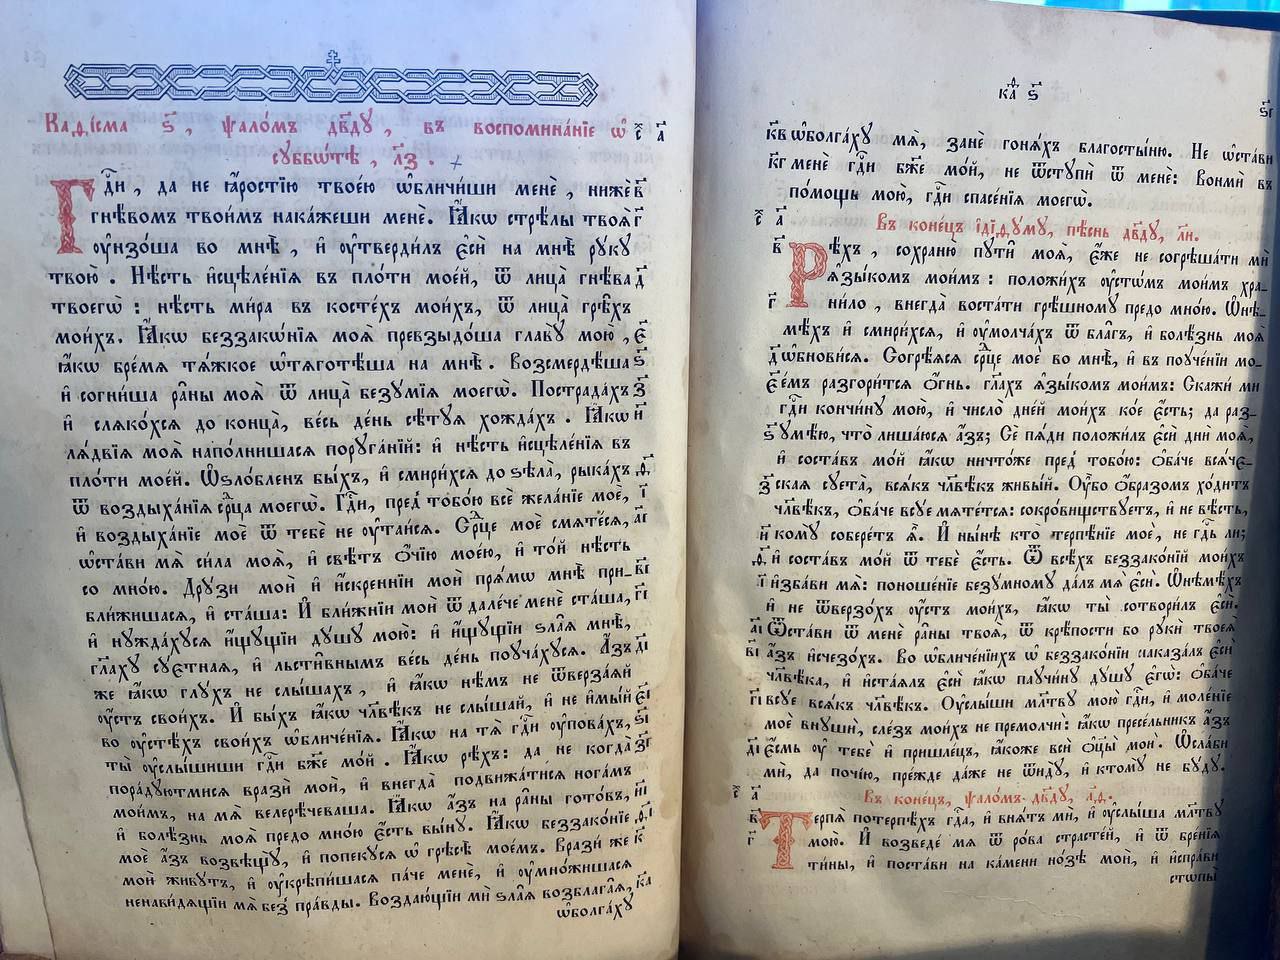 Каѳі́сма ѕ҃, ѱало́мъ дв҃дꙋ, въ воспомина́нїе ѡ҆ с҃ а҃
сꙋббѡ́тѣ, л҃з.
Гдⷭ҇и, да не ꙗ҆́ростїю твое́ю ѡ҆бличи́ши менѐ, нижѐ в҃
гнѣ́вомъ твои́мъ нака́жеши менѐ. Ꙗ҆́кѡ стрѣ́лы твоѧ̑ г҃
ᲂу҆нзо́ша во мнѣ̀, и҆ ᲂу҆тверди́лъ є҆сѝ на мнѣ̀ рꙋ́кꙋ
твою̀. Нѣ́сть и҆сцѣле́нїѧ въ пло́ти мое́й, ѿ лица̀ гнѣ́ва д҃
твоегѡ̀: нѣ́сть ми́ра въ косте́хъ мои́хъ, ѿ лица̀ грѣ̑хъ
мои́хъ. Ꙗ҆́кѡ беззакѡ́нїѧ моѧ̑ превзыдо́ша главꙋ̀ мою̀, є҃
ꙗ҆́кѡ бре́мѧ тѧ́жкое ѡ҆тѧготѣ́ша на мнѣ̀. Возсмердѣ́ша ѕ҃
и҆ согни́ша ра̑ны моѧ̑ ѿ лица̀ безꙋ́мїѧ моегѡ̀. Пострада́хъ з҃
и҆ слѧко́хсѧ до конца̀, ве́сь де́нь сѣ́тꙋѧ хожда́хъ. Ꙗ҆́кѡ и҃
лѧ́двїѧ моѧ̑ напо́лнишасѧ порꙋга́нїй: и҆ нѣ́сть и҆сцѣле́нїѧ въ
пло́ти мое́й. Ѡ҆ѕло́бленъ бы́хъ, и҆ смири́хсѧ до ѕѣла̀, рыка́хъ ѳ҃
ѿ воздыха́нїѧ срⷣца моегѡ̀. Гдⷭ҇и, пред̾ тобо́ю всѐ жела́нїе моѐ, і҃
и҆ воздыха́нїе моѐ ѿ тебє̀ не ᲂу҆таи́сѧ. Срⷣце моѐ смѧте́сѧ, а҃і
ѡ҆ста́ви мѧ̀ си́ла моѧ̀, и҆ свѣ́тъ ѻ҆́чїю моє́ю, и҆ то́й нѣ́сть
со мно́ю. Дрꙋ́зи моѝ и҆ и҆́скреннїи моѝ прѧ́мѡ мнѣ̀ при- в҃і
бли́жишасѧ, и҆ ста́ша: И҆ бли́жнїи моѝ ѿ дале́че менє̀ ста́ша, г҃і
и҆ нꙋжда́хꙋсѧ и҆́щꙋщїи дꙋ́шꙋ мою̀: и҆ и҆́щꙋщїи ѕла̑ѧ мнѣ̀,
гл҃ахꙋ сꙋ́єтнаѧ, и҆ льсти̑внымъ ве́сь де́нь поꙋча́хꙋсѧ. А҆́зъ д҃і
же ꙗ҆́кѡ глꙋ́хъ не слы́шахъ, и҆ ꙗ҆́кѡ нѣ́мъ не ѿверза́ѧй
ᲂу҆́стъ свои́хъ. И҆ бы́хъ ꙗ҆́кѡ чл҃вѣ́къ не слы́шай, и҆ не и҆мы́й є҃і
во ᲂу҆стѣ́хъ свои́хъ ѡ҆бличе́нїѧ. Ꙗ҆́кѡ на тѧ̀ гдⷭ҇и ᲂу҆пова́хъ, ѕ҃і
ты̀ ᲂу҆слы́шиши гдⷭ҇и бж҃е мо́й. Ꙗ҆́кѡ рѣ́хъ: да не когда̀ з҃і
пора́дꙋютмисѧ врази́ моѝ, и҆ внегда̀ подвижа́тисѧ нога́мъ
мои́мъ, на мѧ̀ велерѣ́чеваша. Ꙗ҆́кѡ а҆́зъ на ра̑ны гото́въ, и҃і
и҆ болѣ́знь моѧ̀ предо мно́ю є҆́сть вы́нꙋ. Ꙗ҆́кѡ беззако́нїе ѳ҃і
моѐ а҆́зъ возвѣщꙋ̀, и҆ попекꙋ́сѧ ѡ҆ грѣсѣ̀ мое́мъ. Врази́ же к҃
моѝ живꙋ́тъ, и҆ ᲂу҆крѣпи́шасѧ па́че менє̀, и҆ ᲂу҆мно́жишасѧ
ненави́дѧщїи мѧ̀ без̾ пра́вды. Воздаю́щїи мѝ ѕла̑ѧ возблага̑ѧ, к҃а
ѡ҆болга́хꙋ
ка҃ѳ ѕ҃
ѕ҃г
к҃в ѡ҆болга́хꙋ мѧ̀, занѐ гонѧ́хъ благосты́ню. Не ѡ҆ста́ви
к҃г менѐ гдⷭ҇и бж҃е мо́й, не ѿстꙋпѝ ѿ менє̀: Вонмѝ въ
по́мощь мою̀, гдⷭ҇и спасе́нїѧ моегѡ̀.
с҃ а҃ Въ коне́цъ і҆дїѳꙋ́мꙋ, пѣ́снь дв҃дꙋ, л҃и.
в҃ Рѣ́хъ, сохраню̀ пꙋти̑ моѧ̑, є҆́же не согрѣша́ти мѝ
ꙗ҆зы́комъ мои́мъ: положи́хъ ᲂу҆стѡ́мъ мои̑мъ хра-
г҃ ни́ло, внегда̀ воста́ти грѣ́шномꙋ предо мно́ю. Ѡ҆нѣ-
мѣ́хъ и҆ смири́хсѧ, и҆ ᲂу҆молча́хъ ѿ бла̑гъ, и҆ болѣ́знь моѧ̀
д҃ ѡ҆бнови́сѧ. Согрѣ́ѧсѧ срⷣце моѐ во мнѣ̀, и҆ въ поꙋче́нїи мо-
є҃ е́мъ разгори́тсѧ ѻ҆́гнь. гл҃ахъ ꙗ҆зы́комъ мои́мъ: Скажи́ ми
гдⷭ҇и кончи́нꙋ мою̀, и҆ число̀ дне́й мои́хъ ко́е є҆́сть; да раз-
ѕ҃ ꙋмѣ́ю, что̀ лиша́юсѧ а҆́зъ; Сѐ пѧ̑ди положи́лъ є҆сѝ дни̑ моѧ̑,
и҆ соста́въ мо́й ꙗ҆́кѡ ничто́же пред̾ тобо́ю: ѻ҆ба́че всѧ́че-
з҃ скаѧ сꙋета̀, всѧ́къ чл҃вѣ́къ живы́й. Оу҆́бо ѻ҆́бразомъ хо́дитъ
чл҃вѣ́къ, ѻ҆ба́че всꙋ́е мѧте́тсѧ: сокро́виществꙋетъ, и҆ не вѣ́сть,
и҃ комꙋ̀ собере́тъ ѧ҆̀. И҆ ны́нѣ кто̀ терпѣ́нїе моѐ, не гдⷭ҇ь ли;
ѳ҃ и҆ соста́въ мо́й ѿ тебє̀ є҆́сть. Ѿ всѣ́хъ беззако́нїй мои́хъ
і҃ и҆зба́ви мѧ̀: поноше́нїе безꙋ́мномꙋ да́лъ мѧ̀ є҆сѝ. Ѡ҆нѣмѣ́хъ
и҆ не ѿверзо́хъ ᲂу҆́стъ мои́хъ, ꙗ҆́кѡ ты̀ сотвори́лъ є҆сѝ.
а҃і Ѿста́ви ѿ менє̀ ра̑ны твоѧ̑, ѿ крѣ́пости бо рꙋкѝ твоеѧ̀
в҃і а҆́зъ и҆счезо́хъ. Во ѡ҆бличе́нїихъ ѡ҆ беззако́нїи наказа́лъ є҆сѝ
чл҃вѣ́ка, и҆ и҆ста́ѧлъ є҆сѝ ꙗ҆́кѡ паꙋчи́нꙋ дꙋ́шꙋ є҆гѡ̀: ѻ҆ба́че
г҃і всꙋ́е всѧ́къ чл҃вѣ́къ. Оу҆слы́ши мл҃твꙋ мою̀ гдⷭ҇и, и҆ моле́нїе
моѐ внꙋшѝ, сле́зъ мои́хъ не премолчѝ: ꙗ҆́кѡ пресе́льникъ а҆́зъ
д҃і є҆́смь ᲂу҆ тебє̀ и҆ пришле́цъ, ꙗ҆́коже всѝ ѻ҆ц҃ы̀ моѝ. Ѡ҆сла́би
мѝ, да почі́ю, пре́жде да́же не ѿидꙋ̀, и҆ ктомꙋ̀ не бꙋ́дꙋ.
с҃ а҃ Въ коне́цъ, ѱало́мъ дв҃дꙋ, л҃ѳ.
в҃ Терпѧ̀ потерпѣ́хъ гдⷭ҇а, и҆ внѧ́тъ мѝ, и҆ ᲂу҆слы́ша мл҃твꙋ
г҃ мою̀. И҆ возведе́ мѧ ѿ ро́ва страсте́й, и҆ ѿ бре́нїѧ
ти́ны, и҆ поста́ви на ка́мени но́зѣ моѝ, и҆ и҆спра́ви
стѡпы̀